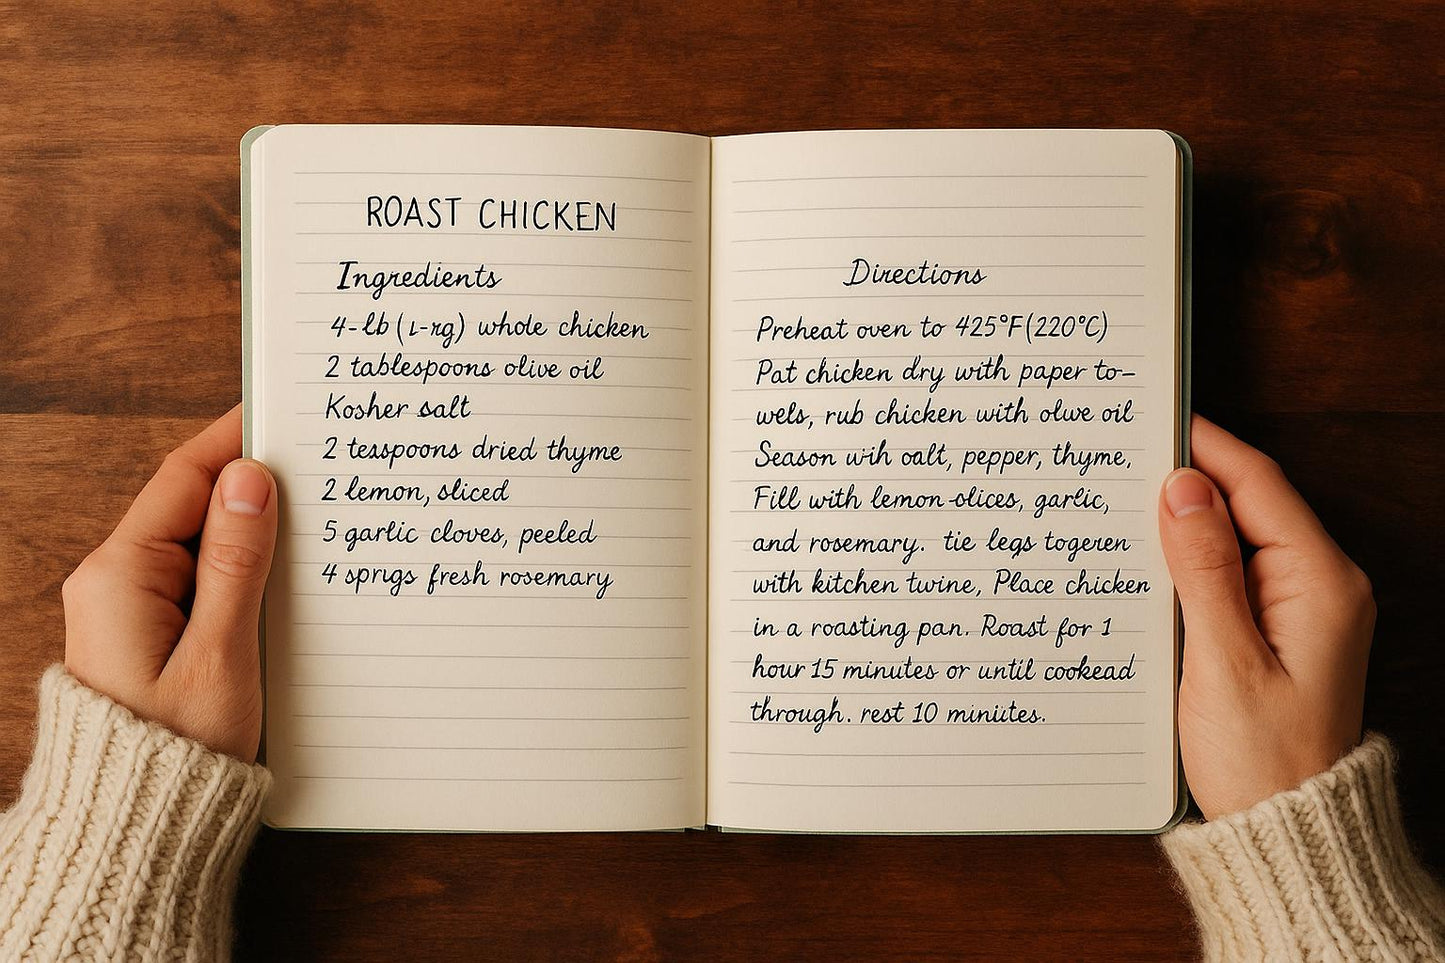 ROAST CHICKEN
Ingredients
4-lb (ı-rg) whole chicken
2 tablespoons olive oil
Kosher salt
2 teaspoons dried thyme
2 lemon, sliced
5 garlic cloves, peeled
4 sprigs fresh rosemary
Directions
Preheat oven to 425°F (220°C)
Pat chicken dry with paper to–
wels, rub chicken with olıve oil
Season wıh oalt, pepper, thyme,
Fill with lemon-slices, garlic,
and rosemary. tie legs togeren
with kitchen twine, Place chicken
in a roasting pan. Roast for 1
hour 15 minutes or until cookead
through. rest 10 miniites.